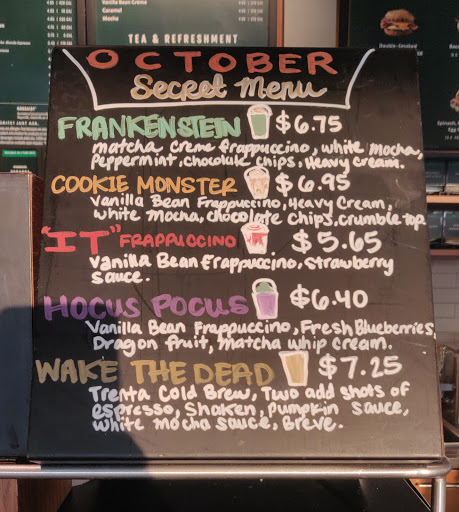 Vanilla Bean Crème
Caramel
Mocha
TEA & REFRESHMENT
OCTOBER
Secret Menu
FRANKENSTEIN $6.75
matcha creme frappuccino, white mocha,
peppermint, chocolate chips, Heavy cream.
COOKIE MONSTER $6.95
Vanilla Bean Frappuccino, Heavy Cream,
white mocha, chocolate chips, crumble top
"IT" FRAPPUCCINO $5.65
Vanilla Bean Frappuccino, Strawberry
sauce.
HOCUS POCUS $6.40
Vanilla Bean Frappuccino, Fresh Blueberries,
Dragon fruit, matcha whip cream.
WAKE THE DEAD $7.25
Trenta Cold Brew, Two add shots of
espresso, Shaken, Pumpkin sauce,
white mocha sauce, Breve.